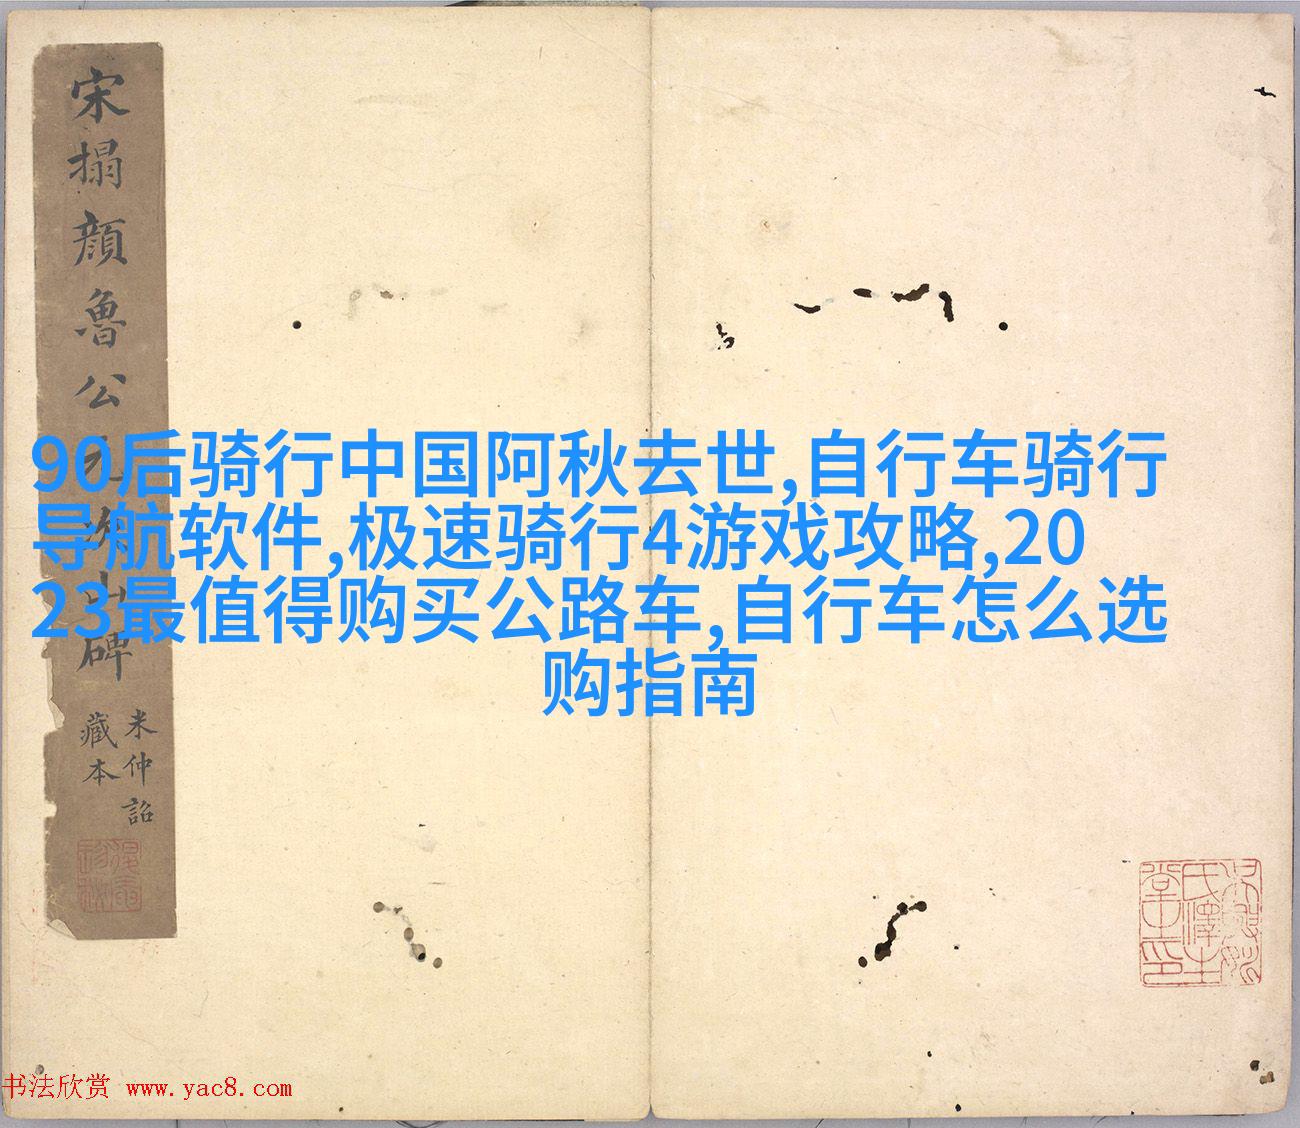 宋搨顏魯公元次山碑
米仲詔
藏本
90后骑行中国阿秋去世,自行车骑行
导航软件,极速骑行4游戏攻略,20
23最值得购买公路车,自行车怎么选
购指南
书法欣赏 www.yac8.com